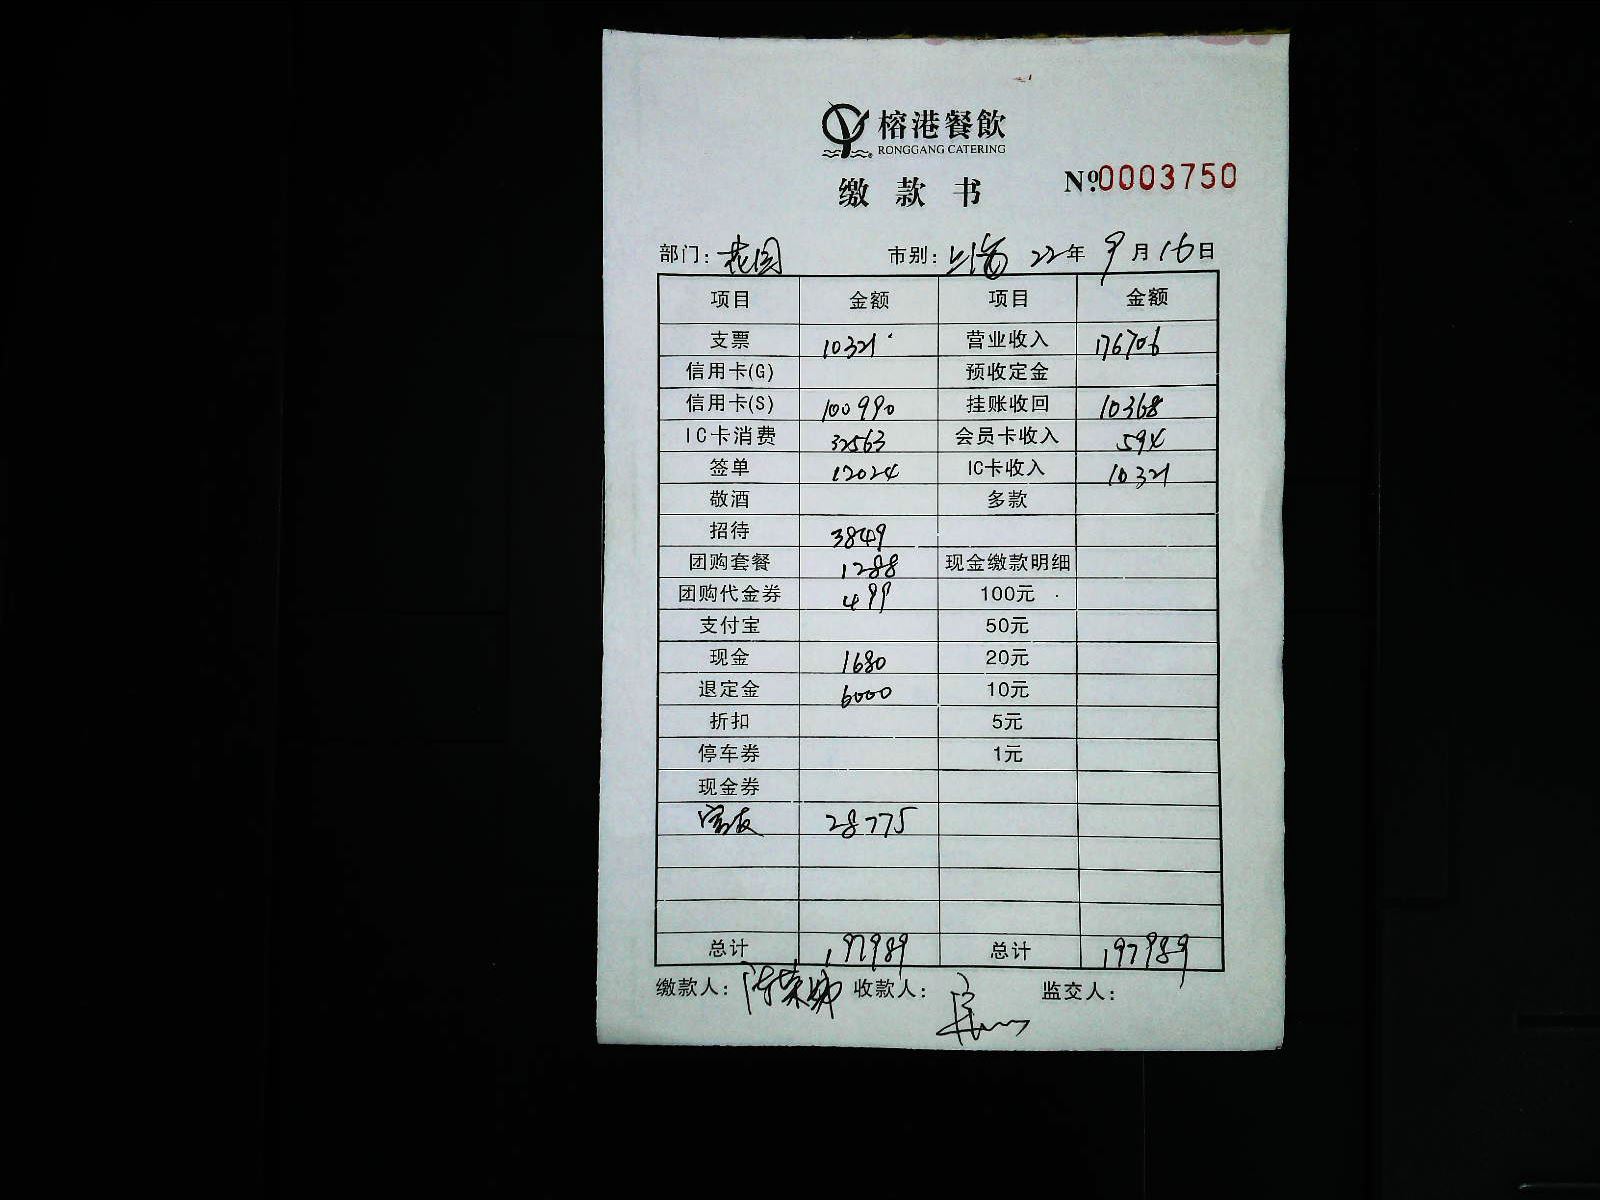 榕港餐飲
RONGGANG CATERING
缴款书
№ 0003750
部门: 花园 市别: 上海 22年 9月16日
项目 金额 项目 金额
支票 10321 营业收入 176706
信用卡(G) 预收定金
信用卡(S) 100990 挂账收回 10368
IC卡消费 32563 会员卡收入 594
签单 12024 IC卡收入 10321
敬酒 多款
招待 3849
团购套餐 1288 现金缴款明细
团购代金券 499 100元
支付宝 50元
现金 1680 20元
退定金 6000 10元
折扣 5元
停车券 1元
现金券
28775
总计 197989 总计 197989
缴款人: 收款人: 监交人: